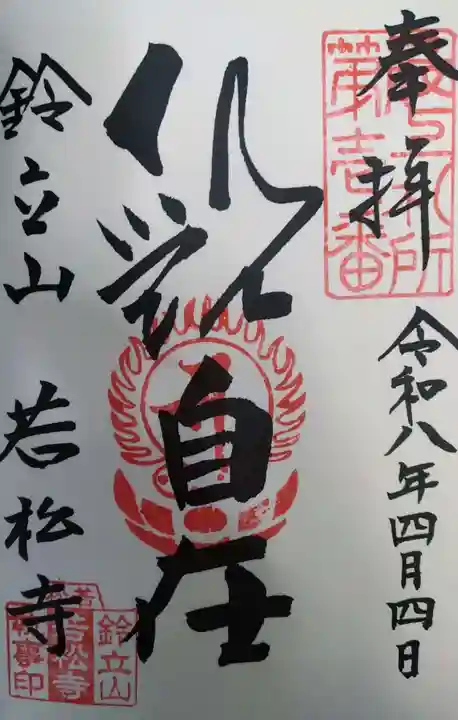 奉拝
最上札所
第壱番
令和八年四月四日
観自在
鈴立山 若松寺
鈴立山
若松寺